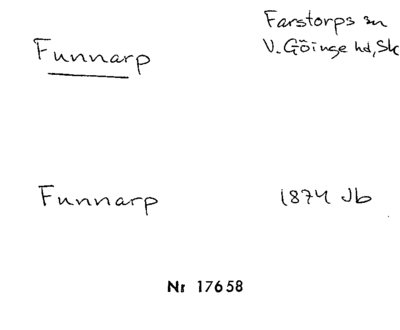 Funnarp
Farstorps sn
V. Göinge hd, Sk
Funnarp
1874 Jb
Nr 17658